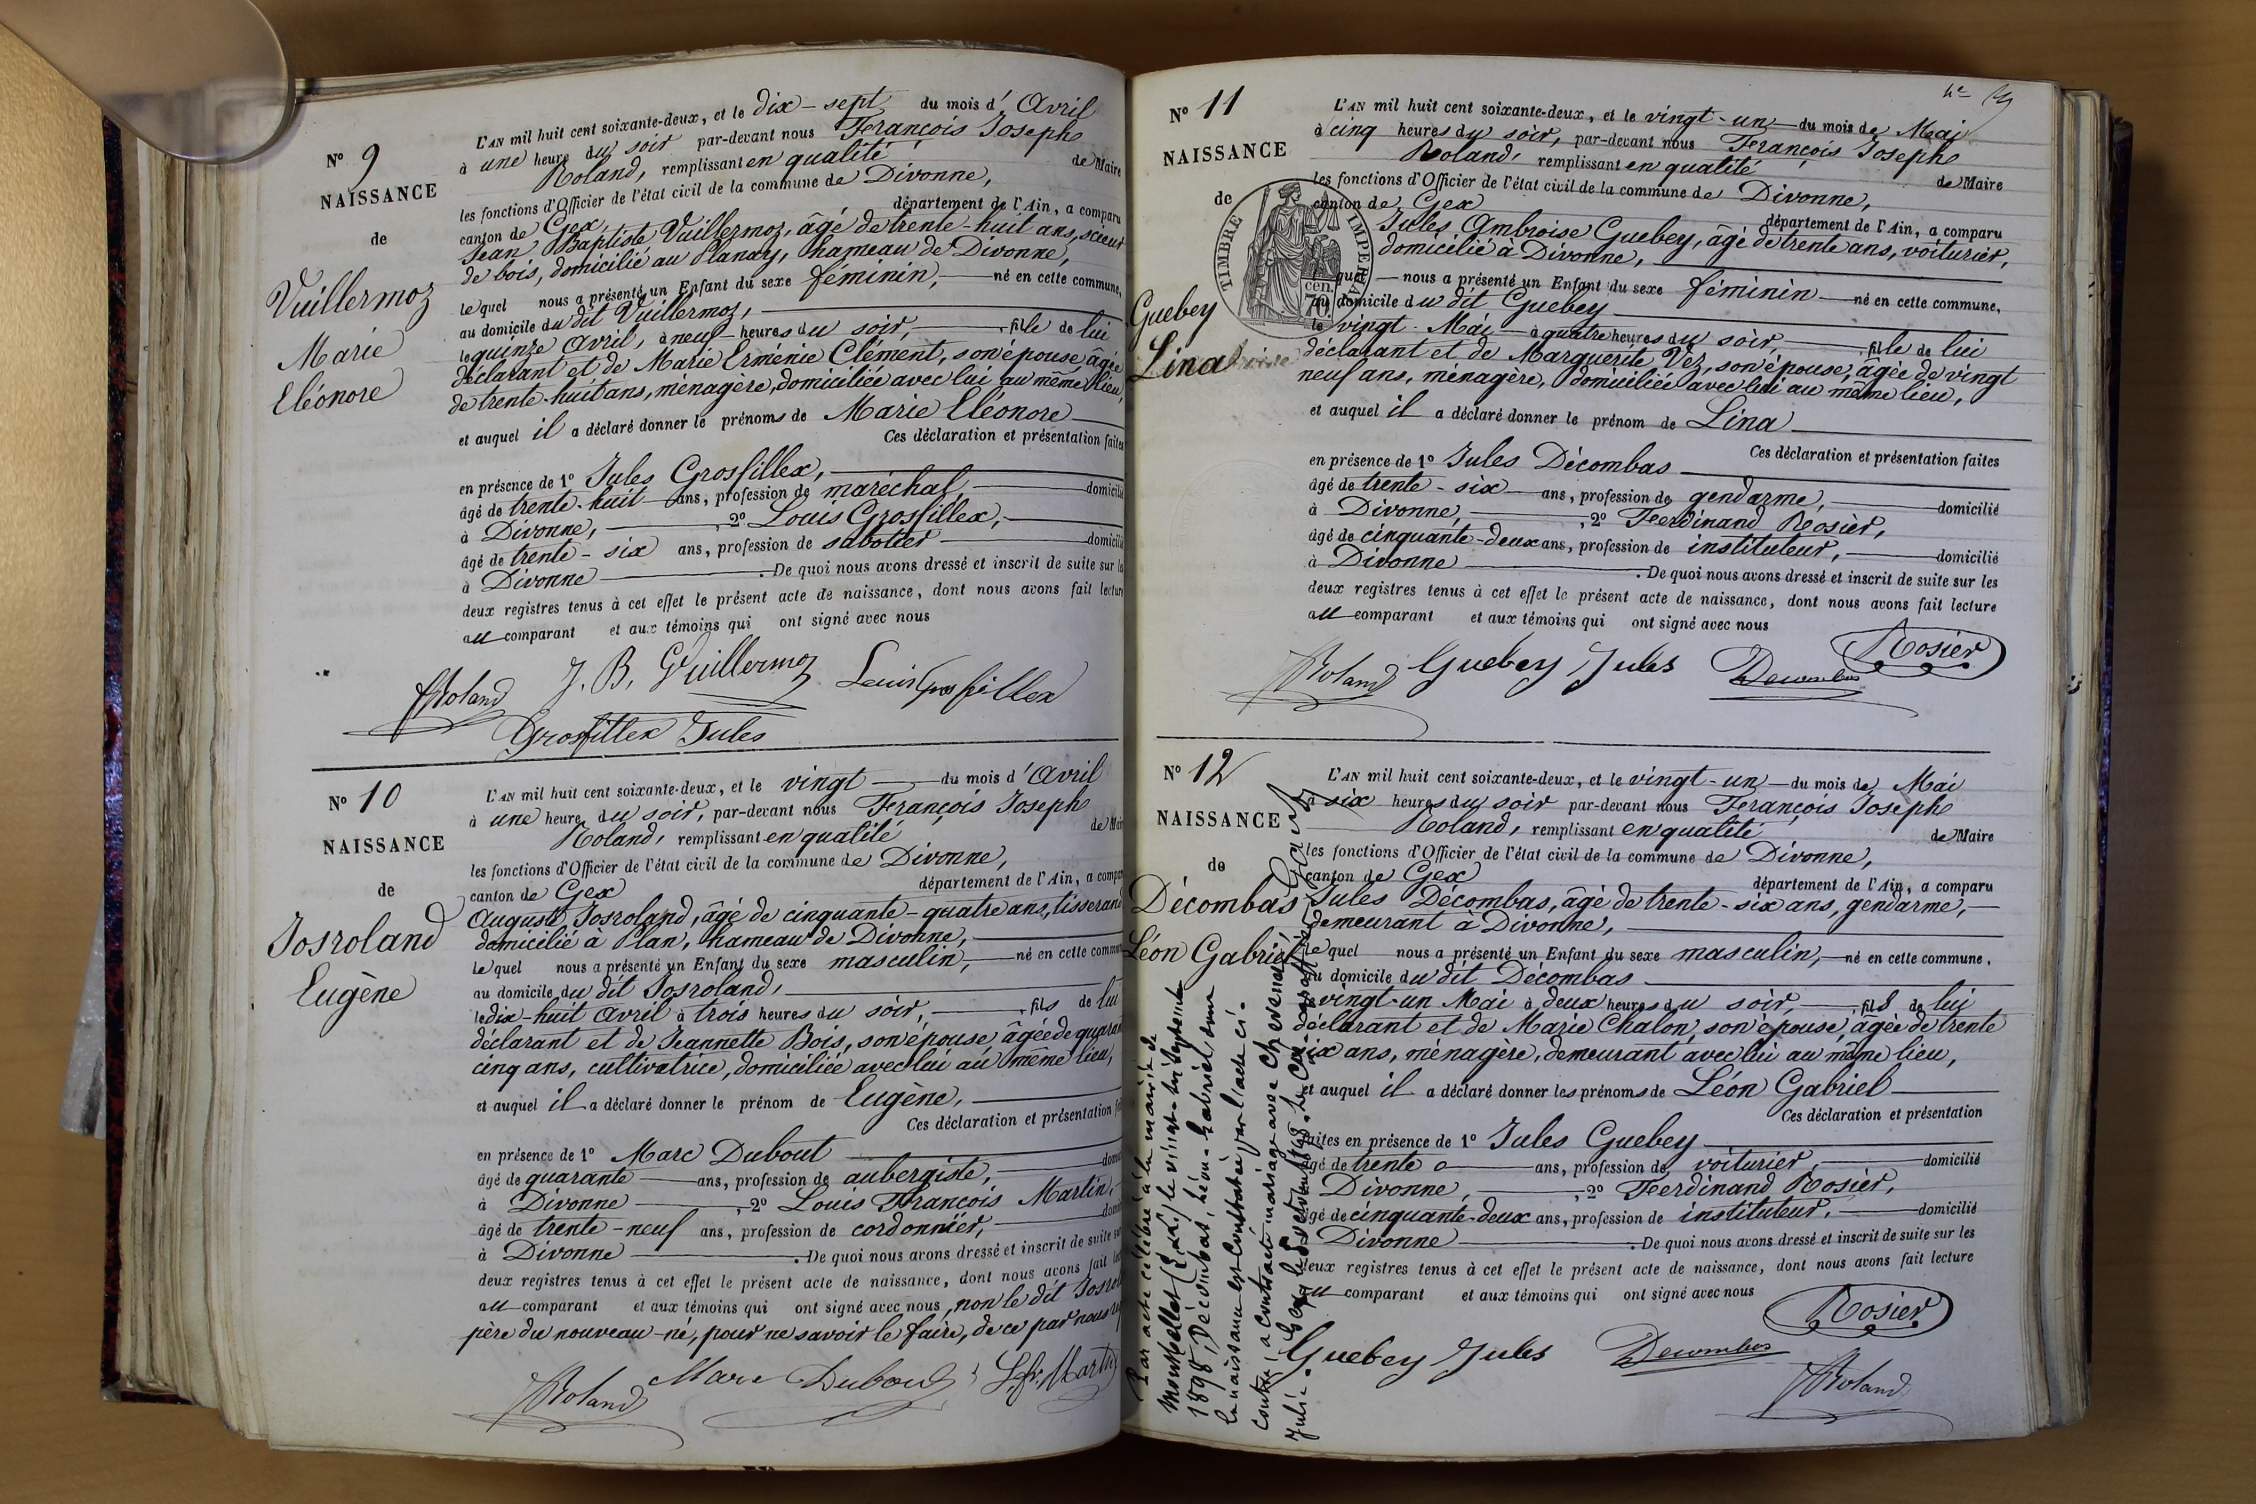 N° 9
NAISSANCE
de
Vuillermoz
Marie
Eléonore
L'AN mil huit cent soixante-deux, et le dix-sept du mois d'Avril
à une heure du soir par-devant nous François Joseph
Roland, remplissant en qualité de Maire
les fonctions d'Officier de l'état civil de la commune de Divonne,
canton de Gex, département de l'Ain, a comparu
Jean Baptiste Vuillermoz, âgé de trente-huit ans, scieur
de bois, domicilié au Planay, hameau de Divonne,
lequel nous a présenté un Enfant du sexe féminin, né en cette commune,
au domicile du dit Vuillermoz,
le quinze Avril, à neuf heures du soir, fille de lui
déclarant et de Marie Erménie Clément, son épouse âgée
de trente-huit ans, ménagère, domiciliée avec lui au même lieu,
et auquel il a déclaré donner le prénoms de Marie Eléonore
Ces déclaration et présentation faites
en présence de 1° Jules Grosfillex,
âgé de trente-huit ans, profession de maréchal, domicilié
à Divonne, 2° Louis Grosfillex,
âgé de trente-six ans, profession de sabotier domicilié
à Divonne. De quoi nous avons dressé et inscrit de suite sur le
deux registres tenus à cet effet le présent acte de naissance, dont nous avons fait lecture
au comparant et aux témoins qui ont signé avec nous
J. B. Vuillermoz Louis Grosfillex
FRoland
Grosfillex Jules
N° 10
NAISSANCE
de
Josroland
Eugène
L'AN mil huit cent soixante-deux, et le vingt du mois d'Avril
à une heure du soir, par-devant nous François Joseph
Roland, remplissant en qualité de Mair
les fonctions d'Officier de l'état civil de la commune de Divonne,
canton de Gex département de l'Ain, a compar
Auguste Josroland, âgé de cinquante-quatre ans, tisserand
domicilié à Plan, hameau de Divonne,
lequel nous a présenté un Enfant du sexe masculin, né en cette commun
au domicile du dit Josroland,
le dix-huit Avril à trois heures du soir, fils de lui
déclarant et de Jeannette Bois, son épouse âgée de quaran
cinq ans, cultivatrice, domiciliée avec lui au même lieu,
et auquel il a déclaré donner le prénom de Eugène,
Ces déclaration et présentation fai
en présence de 1° Marc Dubout
âgé de quarante ans, profession de aubergiste, domi
à Divonne, 2° Louis François Martin,
âgé de trente-neuf ans, profession de cordonnier, domi
à Divonne. De quoi nous avons dressé et inscrit de suite sur
deux registres tenus à cet effet le présent acte de naissance, dont nous avons fait lec
au comparant et aux témoins qui ont signé avec nous, non le dit Josrol
père du nouveau-né, pour ne savoir le faire, de ce par nous
FRoland Marc Dubout L. fr. Martin
N° 11
NAISSANCE
de
Guebey
Lina
TIMBRE IMPERIAL
70 cen.
L'AN mil huit cent soixante-deux, et le vingt-un du mois de Mai
à cinq heures du soir, par-devant nous François Joseph
Roland, remplissant en qualité de Maire
les fonctions d'Officier de l'état civil de la commune de Divonne,
canton de Gex département de l'Ain, a comparu
Jules Ambroise Guebey, âgé de trente ans, voiturier,
domicilié à Divonne,
lequel nous a présenté un Enfant du sexe féminin né en cette commune,
au domicile du dit Guebey
le vingt Mai à quatre heures du soir, fille de lui
déclarant et de Marguerite Vez, son épouse, âgée de vingt
neuf ans, ménagère, domiciliée avec lui au même lieu,
et auquel il a déclaré donner le prénom de Lina
Ces déclaration et présentation faites
en présence de 1° Jules Décombas
âgé de trente-six ans, profession de gendarme, domicilié
à Divonne, 2° Ferdinand Rosier,
âgé de cinquante-deux ans, profession de instituteur, domicilié
à Divonne. De quoi nous avons dressé et inscrit de suite sur les
deux registres tenus à cet effet le présent acte de naissance, dont nous avons fait lecture
au comparant et aux témoins qui ont signé avec nous
Rosier
FRoland Guebey Jules Decombas
N° 12
NAISSANCE
de
Décombas
Léon Gabriel
L'AN mil huit cent soixante-deux, et le vingt-un du mois de Mai
à six heures du soir par-devant nous François Joseph
Roland, remplissant en qualité de Maire
les fonctions d'Officier de l'état civil de la commune de Divonne,
canton de Gex département de l'Ain, a comparu
Jules Décombas, âgé de trente-six ans, gendarme,
demeurant à Divonne,
lequel nous a présenté un Enfant du sexe masculin, né en cette commune.
au domicile du dit Décombas
le vingt-un Mai à deux heures du soir, fils de lui
déclarant et de Marie Chalon, son épouse, âgée de trente
six ans, ménagère, demeurant avec lui au même lieu,
et auquel il a déclaré donner les prénoms de Léon Gabriel
Ces déclaration et présentation
faites en présence de 1° Jules Guebey
âgé de trente ans, profession de voiturier, domicilié
à Divonne, 2° Ferdinand Rosier,
âgé de cinquante-deux ans, profession de instituteur, domicilié
à Divonne. De quoi nous avons dressé et inscrit de suite sur les
deux registres tenus à cet effet le présent acte de naissance, dont nous avons fait lecture
au comparant et aux témoins qui ont signé avec nous
Rosier
Guebey Jules Decombas
FRoland
Par acte célébré à la mairie de
le vingt-six septembre
1898, Décombas, Léon-Gabriel, dont
la naissance est constatée par l'acte ci-
contre, a contracté mariage avec
Julie.